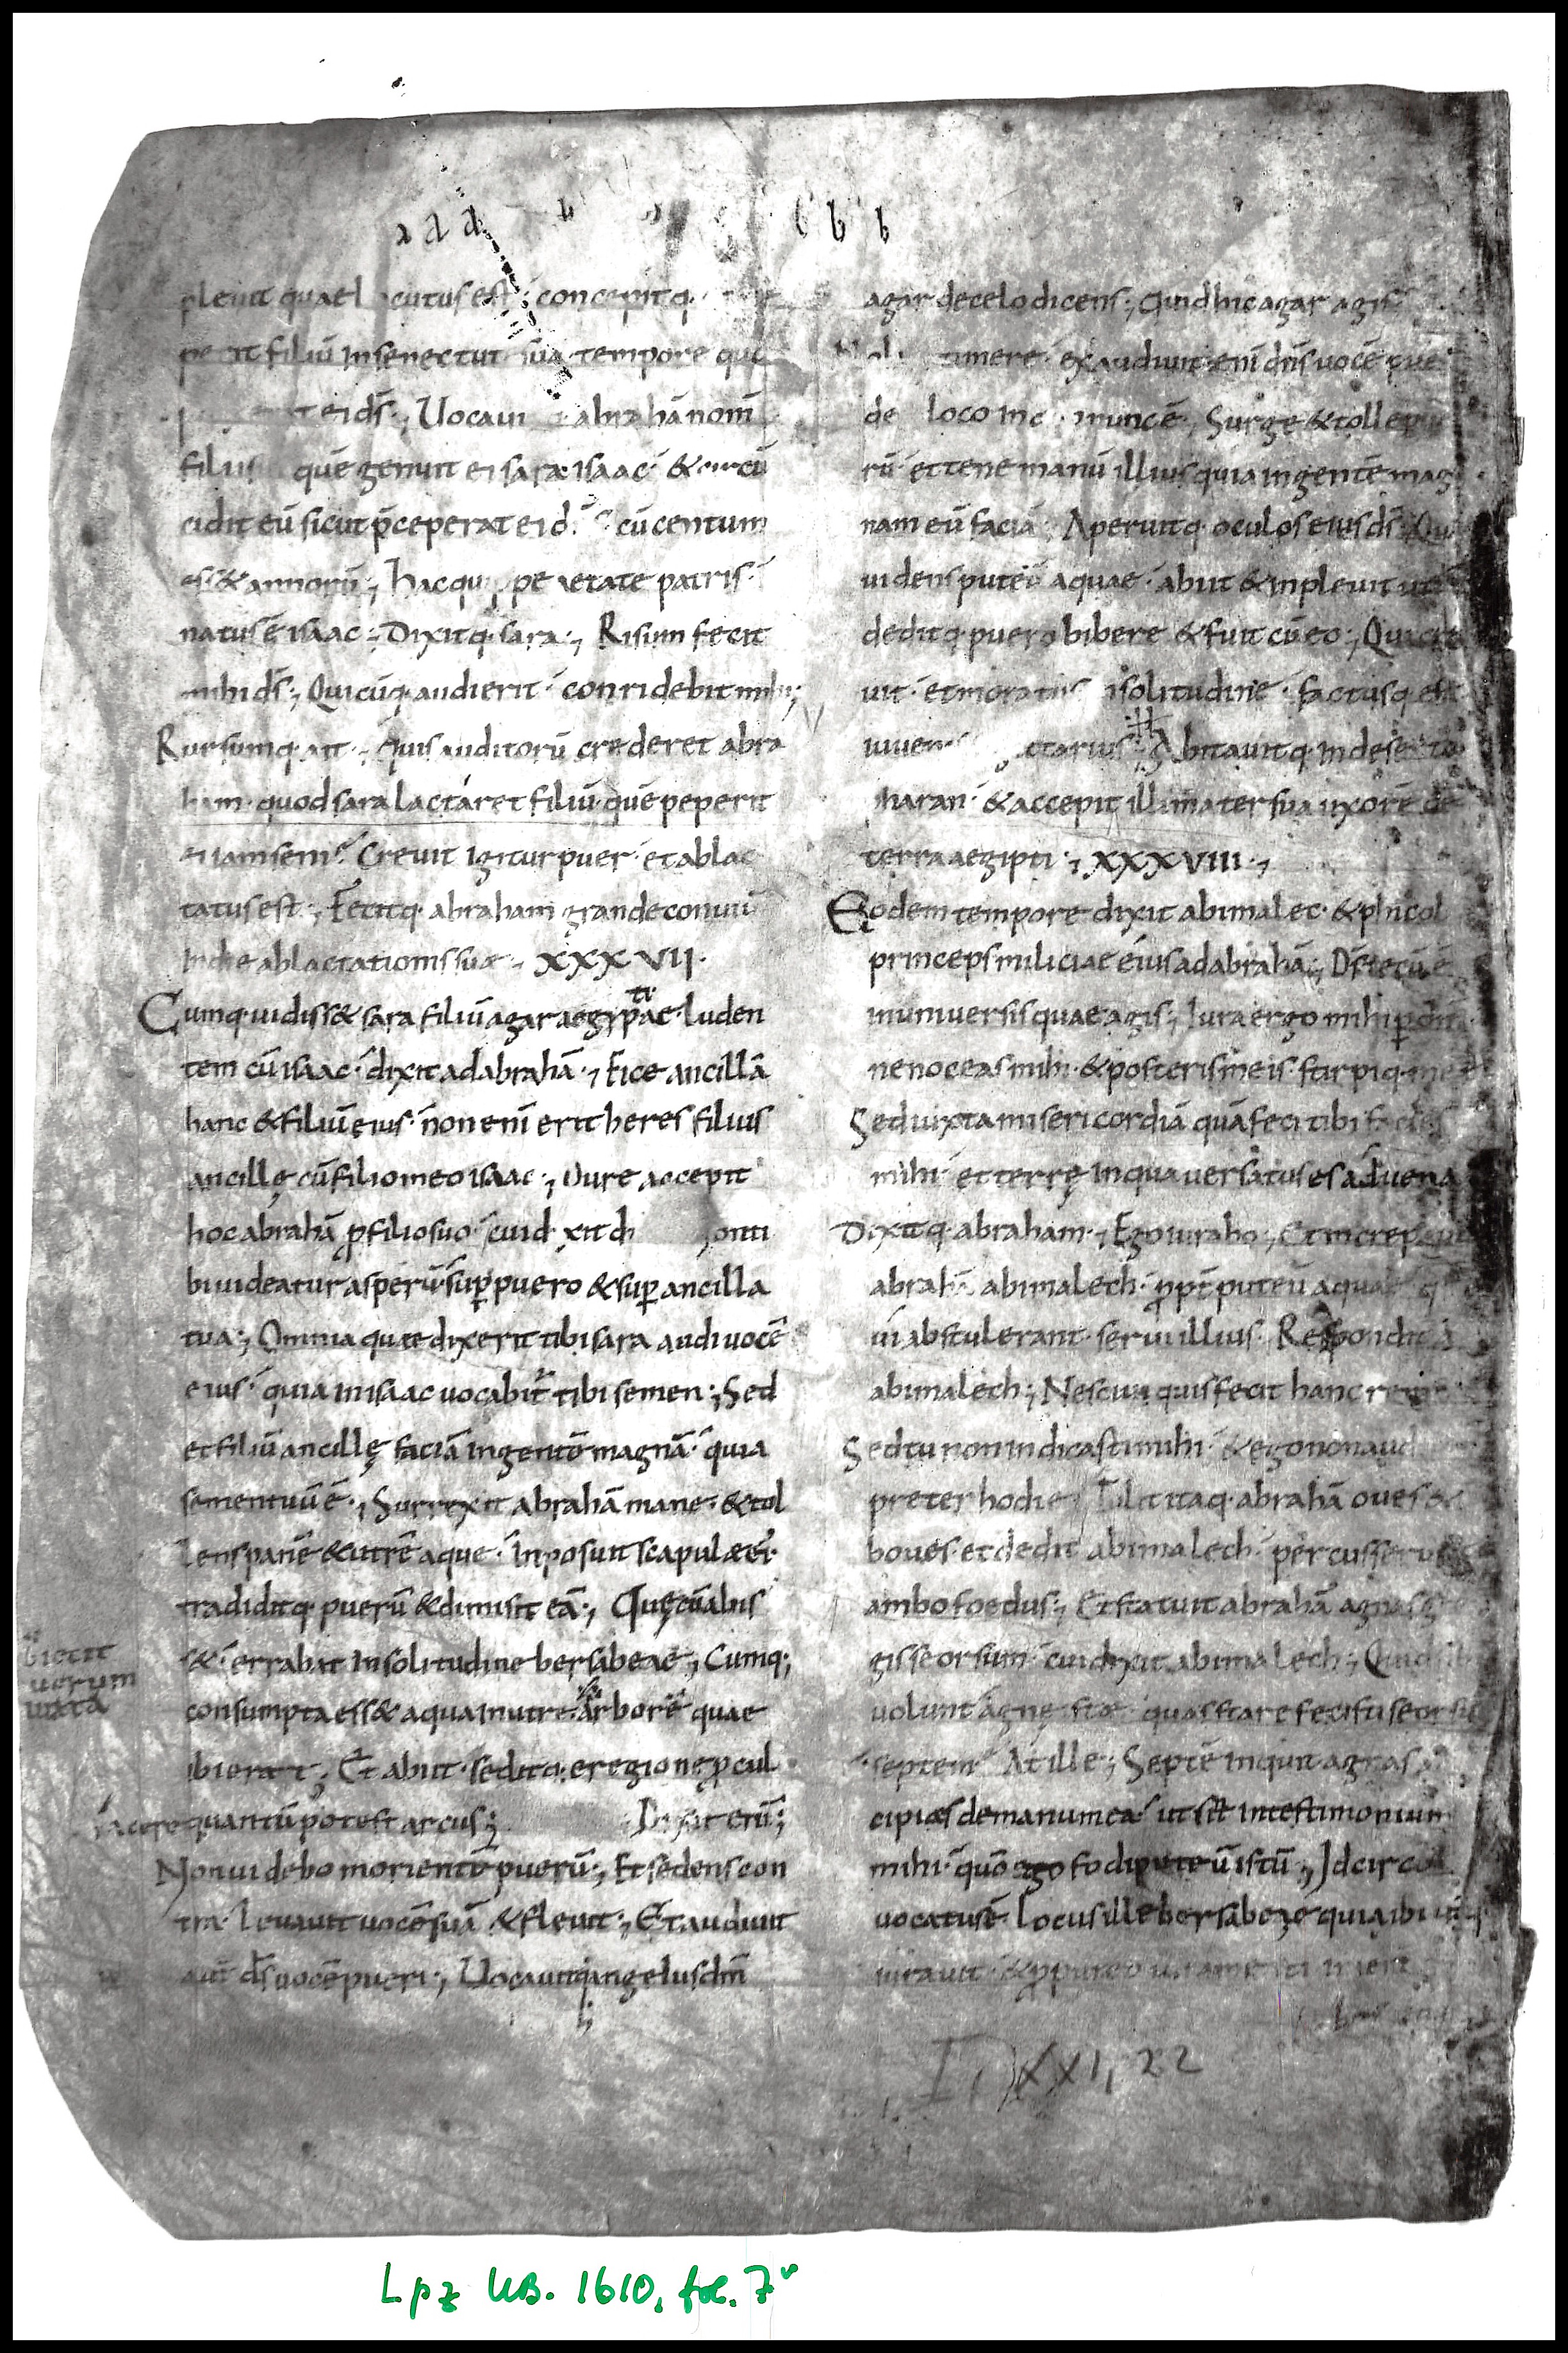 a a a b b b b
pleuit quae locutus est; concepitq·
filiū in senectute sua· tempore quo
ei ds̄·; Uocauit abrahā nom̄
filii quē genuit ei sara· isaac· & circū
cidit eū sicut p̄ceperat ei ds̄ cū centum
& annorū·; hac quippe aetate patris·
natus ē isaac·; Dixitq· sara·; Risum fecit
mihi ds̄·; Quicūq· audierit· conridebit mihi;
Rursumq· ait·; Quis auditorū crederet abra
ham· quod sara lactaret filiū· quē peperit
ei iam seni· Creuit igitur puer· et ablac
tatus est·; Fecitq· abraham grande conuiuiū
In die ablactationis suae·; XXXVII·
Cumq· uidiss& sara filiū agar aegyptiae· luden
tem cū isaac· dixit ad abrahā·; Eice ancillā
hanc & filiū eius· non enī erit heres filius
ancillę cū filio meo isaac·; Dure accepit
hoc abrahā ꝓ filio suo· cui dixit d non ti
bi uideatur asperū· suꝑ puero & suꝑ ancilla
tua·; Omnia quae dixerit tibi sara audi uocē
eius· quia in isaac uocabit̄ tibi semen·; Sed
et filiū ancillę faciā in gentē magnā· quia
semen tuū ē·; Surrexit abrahā mane· & tol
lens panē & utrē aque· Inposuit scapulae ei·
tradiditq· puerū & dimisit eā·; Quę cū abis
s& errabat in solitudine bersabeae·; Cumq·;
consumpta ess& aqua in utre· arborē quae
ibi erant; Et abiit· seditq· e regione ꝓcul
iacere quantū potest arcus·; Dixit enī;
Non uidebo morientē puerū·; Et sedens con
tra· leuauit uocē suā & fleuit·; Et audiuit
aut̄ ds̄ uocē pueri·; Uocauitq· angelus dn̄i
biecit
uerum
iuxta
agar de celo dicens·; Quid hic agar agis
Noli timere· exaudiuit enī dn̄s uocē pue
de loco in nunc ē·; Surge & tolle pue
rū· et tene manū illius quia in gentē mag
nam eū faciā·; Aperuitq· oculos eius ds̄· Qu
uidens puteū aquae· abiit & inpleuit utrē
deditq· puero bibere & fuit cū eo·; Qui cre
uit· et moratus isolitudine· factusq· est
iuuenis sagittarius· Abitauitq· in deserto
pharan· & accepit illi mater sua uxorē de
terra aegipti·; XXXVIII·;
Eodem tempore dixit abimalec· & phicol
princeps miliciae eius ad abrahā·; Ds̄ tecū ē
in uniuersis quae agis·; Iura ergo mihi ꝑ dn̄
ne noceas mihi· & posteris meis· stirpiq· meę
Sed iuxta misericordiā quā feci tibi facies
mihi· et terrę in qua uersatus es aduena
Dixitq· abraham·; Ego iurabo·; Et increpauit
abrahā abimalech· ꝓpt̄ puteū aquae q
ui abstulerant serui illius· Respondit
abimalech·; Nesciui quis fecit hanc rem
Sed tu non indicasti mihi· & ego non aud
preter hodie· Tulit itaq· abrahā oues &
boues· et dedit abimalech· percusserunt
ambo foedus·; Et statuit abrahā agnas gre
gis seorsum· cui dixit abimalech·; Quid
uolunt agnę istae· quas stare fecisti seorsū
septem· At ille·; Septē inquit agnas
cipias de manu mea· ut sit in testimonium
mihi· quō ego fodi puteū istū·; Idcirco
uocatus ē· Locus ille bersabeae quia ibi
iurauit
I, XXI, 22
Lpz UB. 1610, fol. 7v